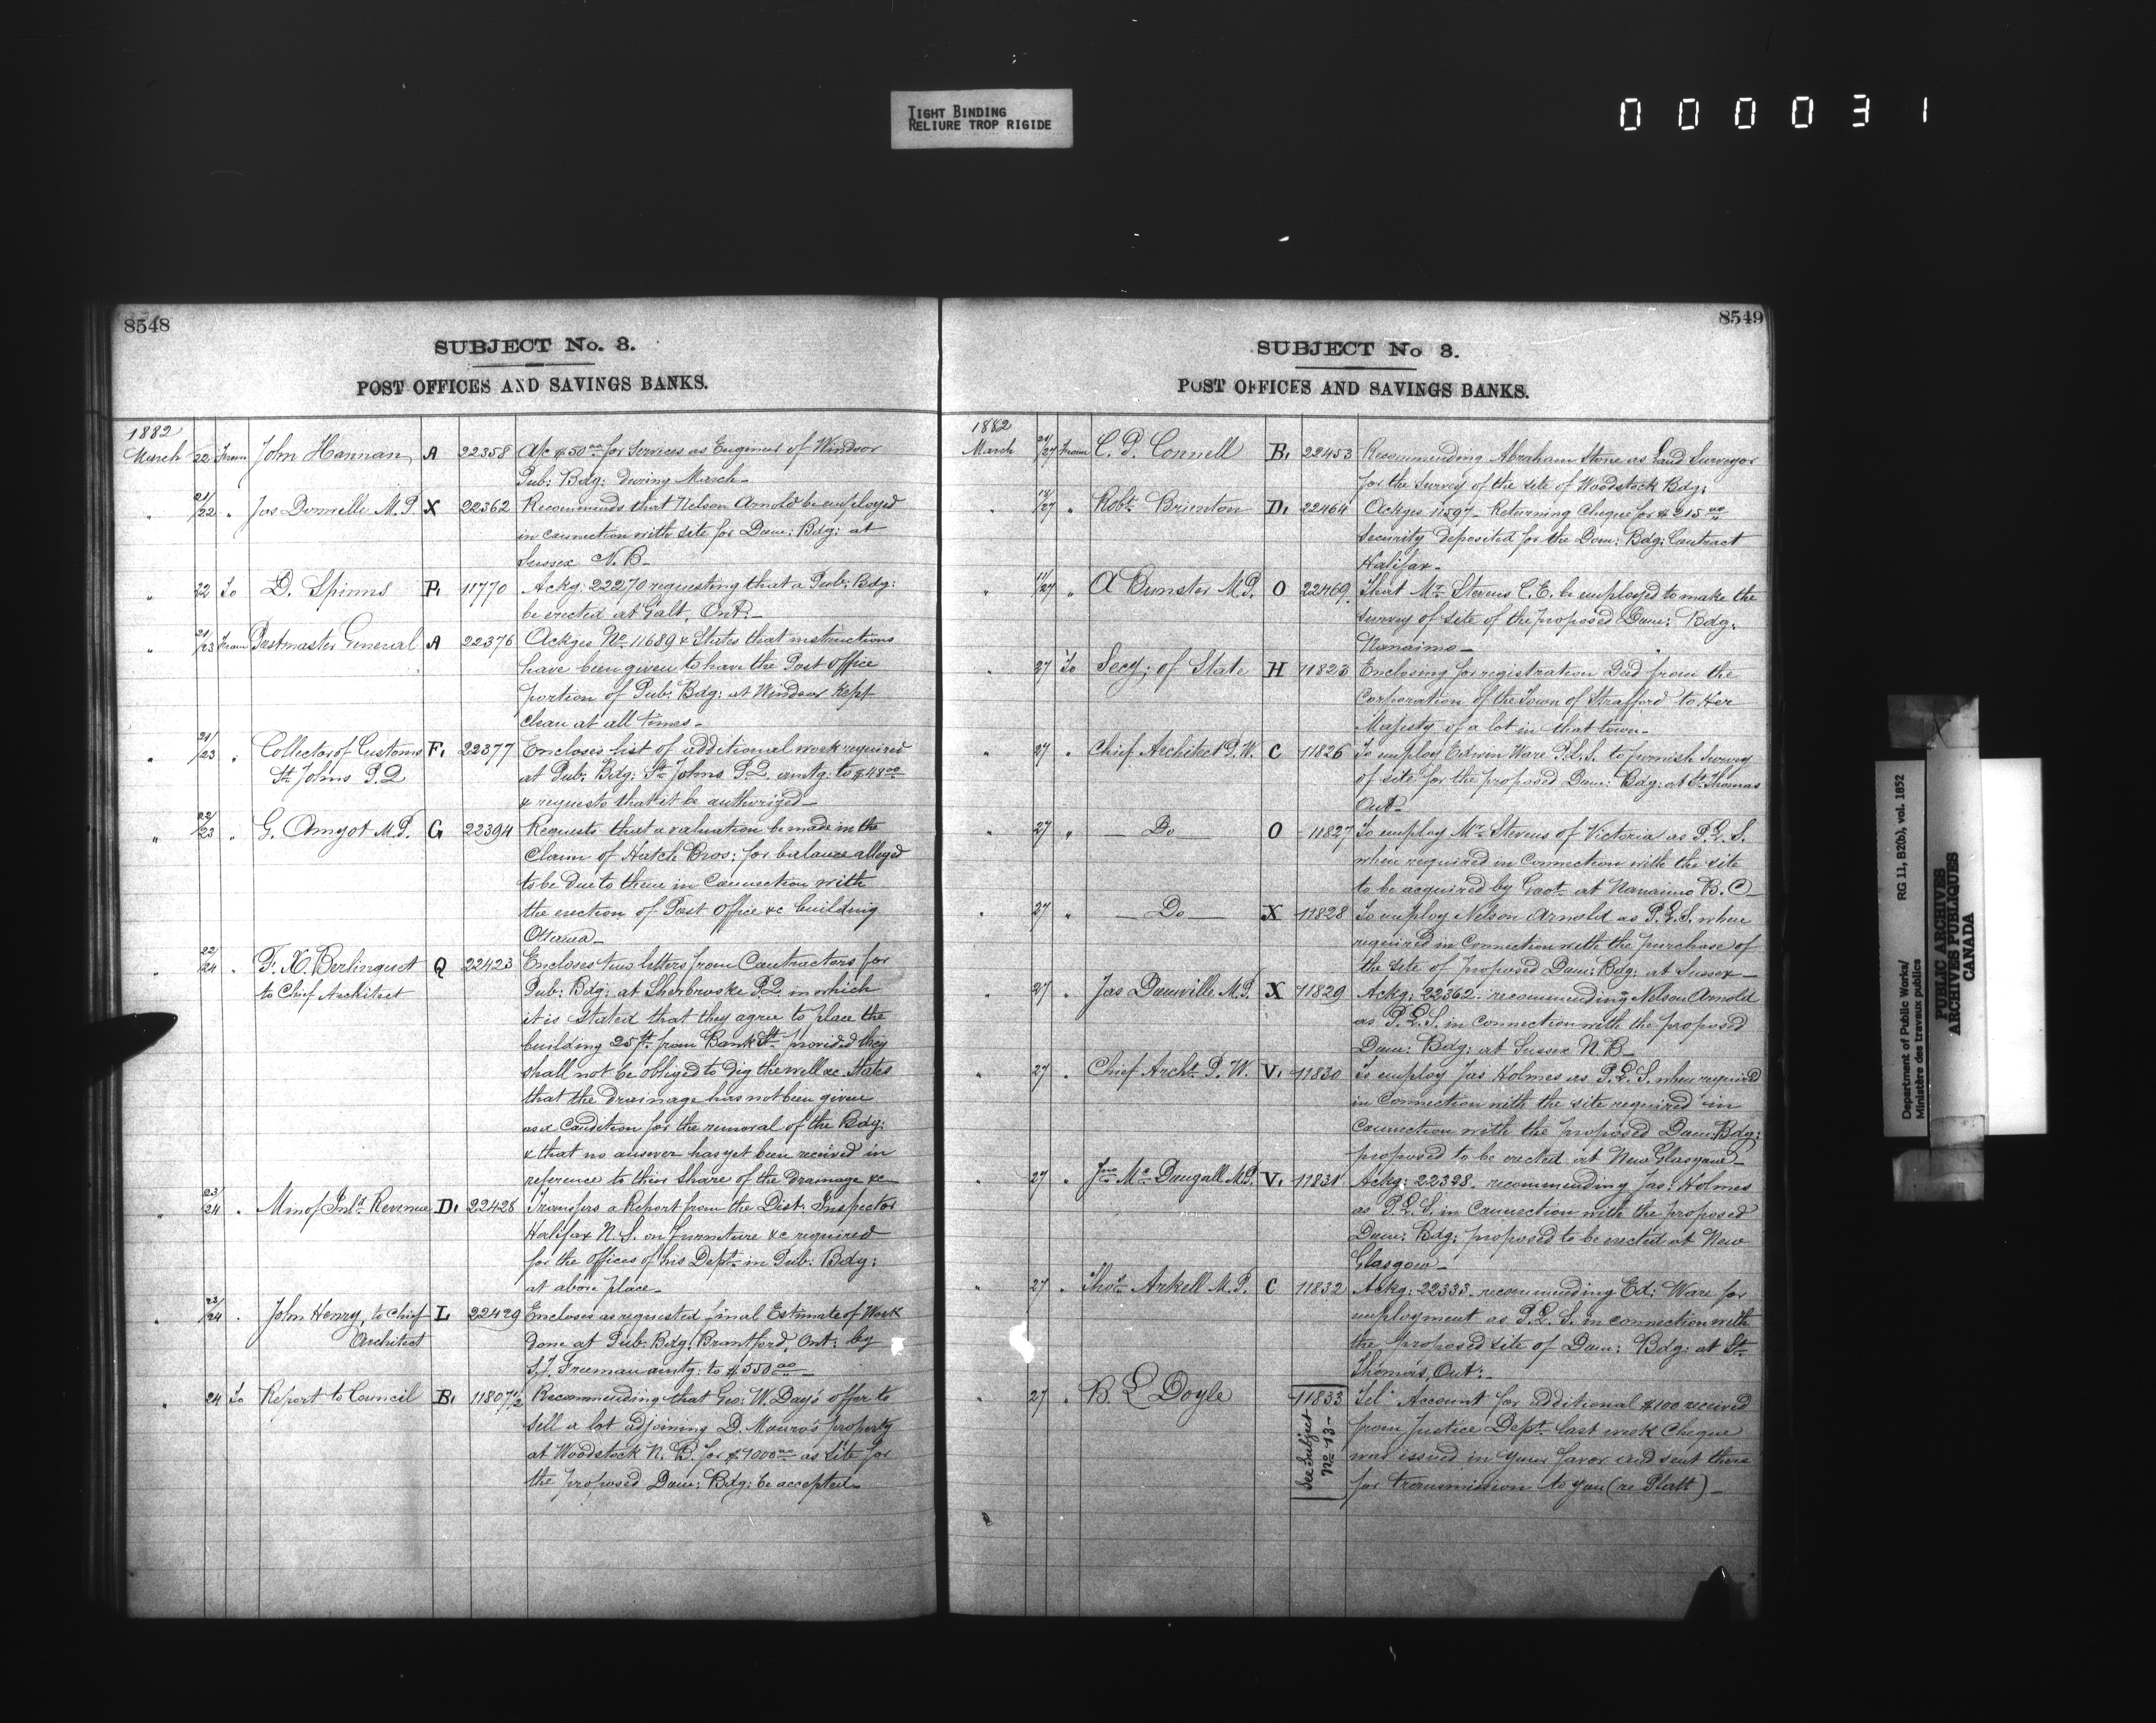 TIGHT BINDING
RELIURE TROP RIGIDE
000031
8548
SUBJECT No. 3.
POST OFFICES AND SAVINGS BANKS.
1882
March 22 From John Hannan A 22358 A/c $50.00 for Services as Engineer of Windsor
Pub: Bdg: during March_
" 21/22 " Jas Domville M.P. X 22362 Recommends that Nelson Arnold be employed
in connection with site for Dom: Bdg: at
Sussex N.B_
" 22 To D. Spinns P. 11770 Ackg: 22270 requesting that a Pub: Bdg:
be erected at Galt, Ont_
" 21/23 From Postmaster General A 22376 Ackges No 11689 & States that instructions
have been given to have the Post Office
portion of Pub: Bdg: at Windsor Kept
clean at all times_
" 21/23 " Collector of Customs F. 22377 Encloses list of additional work required
St Johns P.Q at Pub: Bdg: St Johns P.Q. amtg: to $48.00
& requests that it be authorized_
" 22/23 " G. Amyot M.P. G 22394 Requests that a valuation be made in the
Claim of Hatch Bros: for balance alleged
to be due to them in Connection with
the erection of Post Office &c building
Ottawa_
" 22/24 " F. X. Berlinguet Q 22423 Encloses two letters from Contractors for
to Chief Architect Pub: Bdg: at Sherbrooke P.Q. in which
it is stated that they agree to place the
building 25 ft. from Bank St. provided they
shall not be obliged to dig the well &c. States
that the drainage has not been given
as a Condition for the removal of the Bdg:
& that no answer has yet been received in
reference to their share of the drainage &c_
" 23/24 " Min of Inld Revenue D. 22428 Transfers a Report from the Dist: Inspector
Halifax N.S. on furniture &c required
for the offices of his Dept. in Pub: Bdg:
at above place_
" 23/24 " John Henry, to Chief L 22429 Encloses as requested final Estimate of Work
Architect done at Pub: Bdg: Brantford, Ont: by
Freeman amtg: to $550.00_
" 24 To Report to Council B. 11807 1/2 Recommending that Geo: W. Day's offer to
sell a lot adjoining D. Munro's property
at Woodstock N.B. for $4000.00 as site for
the proposed Dom: Bdg: be accepted_
8549
SUBJECT No 3.
POST OFFICES AND SAVINGS BANKS.
1882
March 24/27 From C. P. Connell B. 22453 Recommending Abraham Stone as Land Surveyor
for the Survey of the site of Woodstock Bdg:
" 18/27 " Robt. Brienton D. 22464 Ackges 11597_ Returning Cheque for $215.00
security deposited for the Dom: Bdg: Contract
Halifax_
" 11/27 " A Bunster M.P. O 22469. That Mr. Stevens C.E. be employed to make the
Survey of site of the proposed Dom: Bdg:
Nanaimo_
" 27 To Secy: of State H 11823 Enclosing for registration Deed from the
Corporation of the Town of Stratford to Her
Majesty of a lot in that town_
" 27 " Chief Architect P.W. C 11826 To employ Edwin Ware P.L.S. to furnish survey
of site for the proposed Dom: Bdg: at St. Thomas
Ont_
" 27 " _ Do _ O 11827 To employ Mr. Stevens of Victoria as P.L.S.
when required in Connection with the site
to be acquired by Govt. at Nanaimo B.C_
" 27 " _ Do _ X 11828 To employ Nelson Arnold as P.L.S. when
required in Connection with the purchase of
the site of proposed Dom: Bdg: at Sussex_
" 27 " Jas Domville M.P. X 11829 Ackg: 22362. recommending Nelson Arnold
as P.L.S. in connection with the proposed
Dom: Bdg: at Sussex N.B_
" 27 " Chief Archt. P.W. V. 11830 To employ Jas Holmes as P.L.S. when required
in Connection with the site required in
Connection with the proposed Dom: Bdg:
proposed to be erected at New Glasgow_
" 27 " Jno Mc Dougall M.P. V. 11831 Ackg: 22398. recommending Jas: Holmes
as P.L.S. in Connection with the proposed
Dom: Bdg: proposed to be erected at New
Glasgow_
" 27 " Thos. Arkell M.P. C 11832 Ackg: 22333. recommending Ed: Ware for
employment as P.L.S. in connection with
the proposed site of Dom: Bdg: at St.
Thomas, Ont:_
" 27 " B. L Doyle 11833 Tel" Account for additional $100 received
See Subject No 13_ from Justice Dept. last week Cheque
was issued in your favor and sent there
for transmission to you (re Platt)_
Department of Public Works/
Ministère des travaux publics
RG 11, B2(b), vol. 1852
PUBLIC ARCHIVES
ARCHIVES PUBLIQUES
CANADA